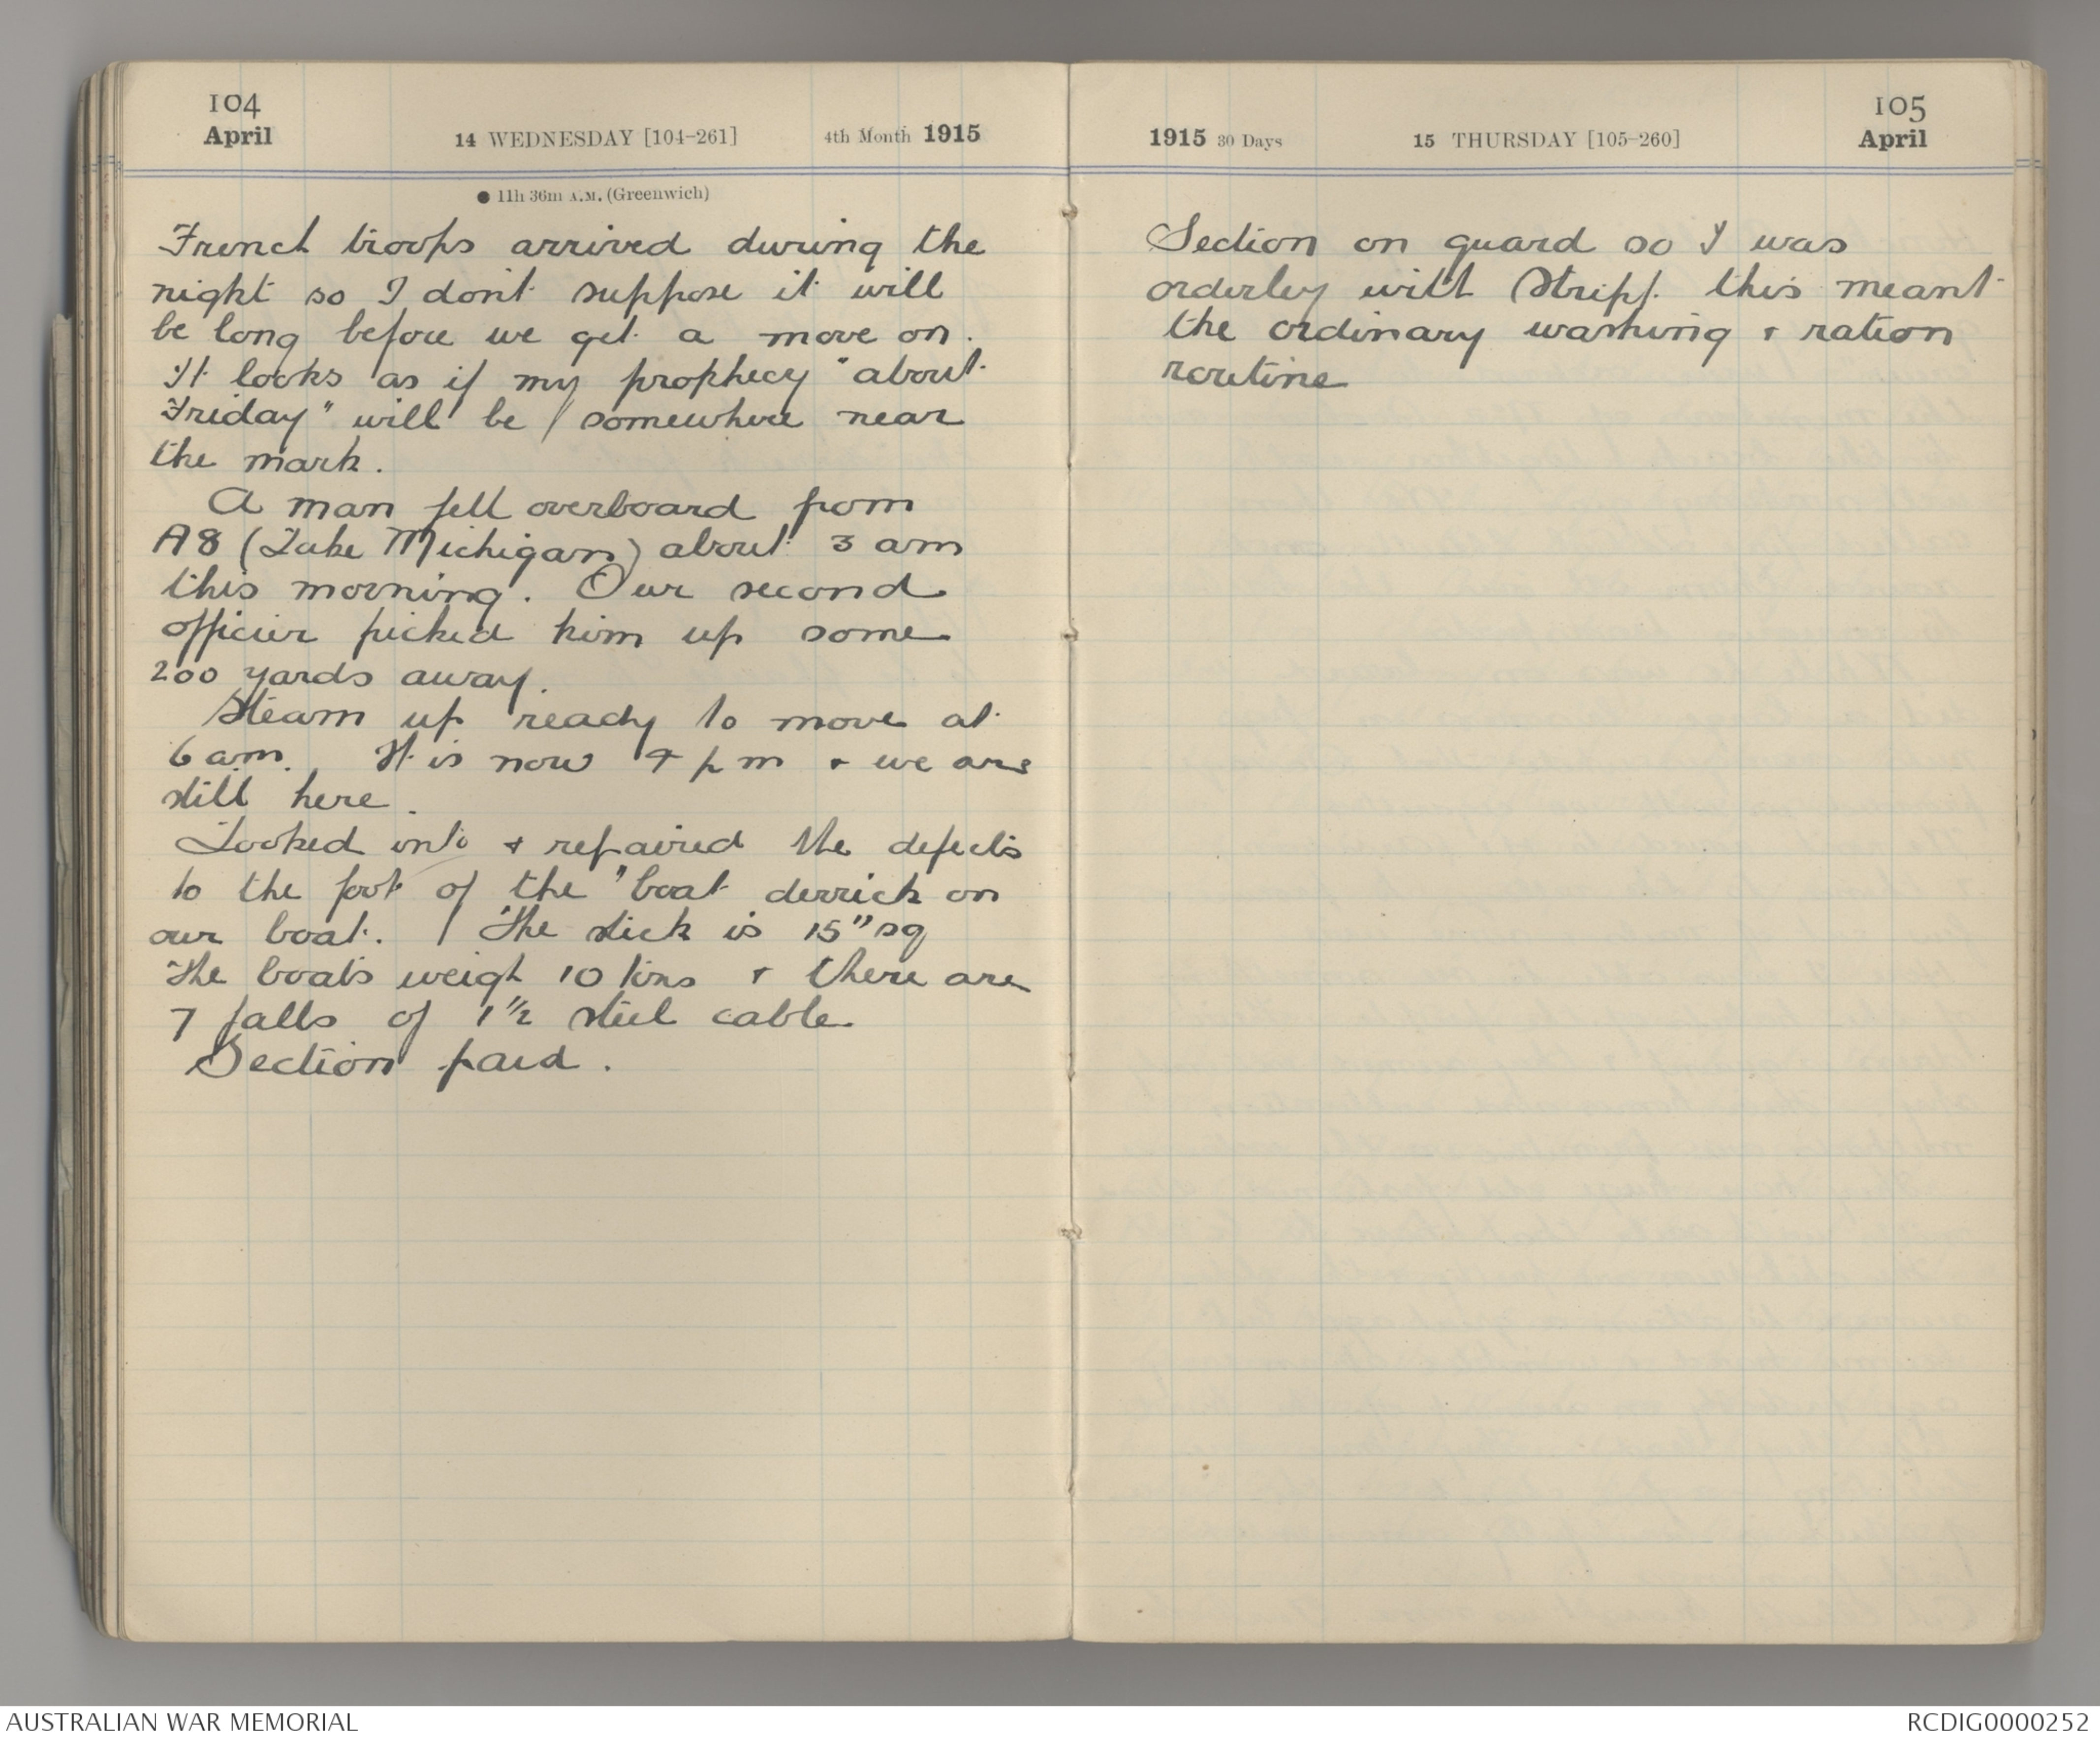 104
April
14 WEDNESDAY [104-261]
4th Month 1915
● 11h 36m A.M. (Greenwich)
French troops arrived during the
night so I don't suppose it will
be long before we get a move on.
It looks as if my prophecy "about
Friday" will be somewhere near
the mark.
A man fell overboard from
A8 (Lake Michigan) about 3 am
this morning. Our second
officier picked him up some
200 yards away.
Steam up ready to move at
6 am. It is now 4 pm & we are
still here.
Looked into & repaired the defects
to the foot of the boat derrick on
our boat. The stick is 15" sq
The boats weigh 10 tons & there are
7 falls of 1 1/2 steel cable
Section paid.
1915 30 Days
15 THURSDAY [105-260]
105
April
Section on guard so I was
orderley with Stripp. this meant
the ordinary washing & ration
routine
AUSTRALIAN WAR MEMORIAL
RCDIG0000252